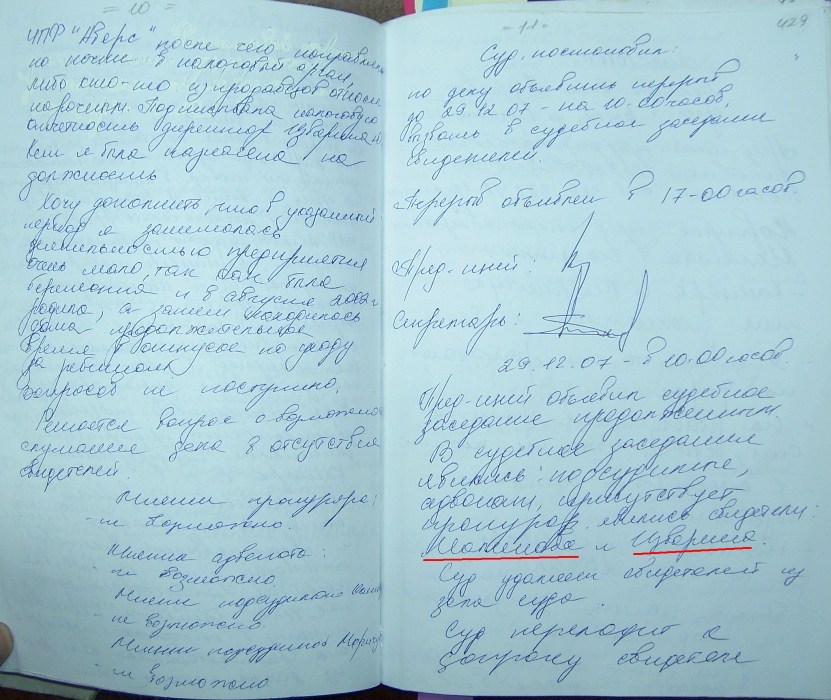 - 10 -
ЧПФ "Аверс" после чего направля
по почте в налоговый орган,
либо кто-то из продавцов относил
нарочным. Подписывала налоговую
отчетность директор Цварина А.
Кем я была назначена на
должность
Хочу дополнить, что в указанный
период я занималась
деятельностью предприятия
очень мало, так как была
беременна и в августе 2002 г
родила, а затем находилась
дома продолжительное
время в отпуске по уходу
за ребенком
Вопросов не поступило.
Решается вопрос о возможно
слушание дела в отсутствие
свидетелей.
Мнение прокурора:
- не возможно.
Мнение адвоката:
- не возможно
Мнение подсудимого
- не возможно
Мнение подсудимой
- не возможно
- 11 -
429
Суд, постановил:
по делу объявить перерыв
до 29.12.07 - на 10.00 часов,
вызвать в судебное заседание
свидетелей.
Перерыв объявлен в 17-00 часов.
Пред-щий:
Секретарь:
29.12.07 - в 10.00 часов.
Пред-щий объявил судебное
заседание продолженным.
В судебное заседание
явились: подсудимые,
адвокат, присутствует
прокурор. явились свидетели:
и
Суд удаляет свидетелей из
зала суда.
Суд переходит к
допросу свидетеля